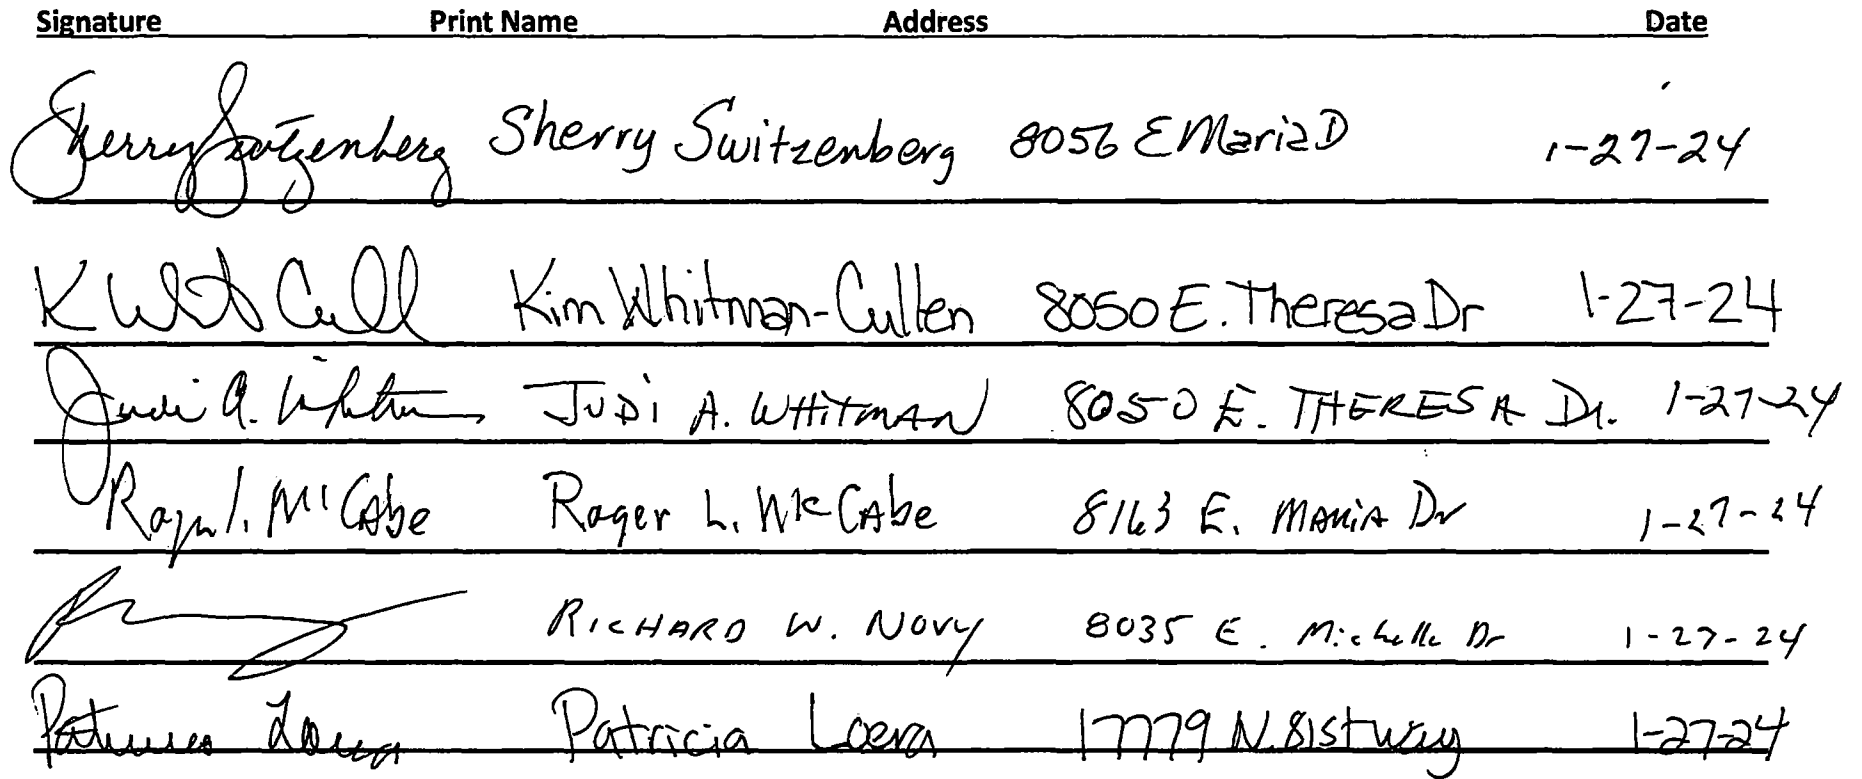 Signature Print Name Address Date
Sherry Switzenberg Sherry Switzenberg 8056 E Maria D 1-27-24
K Whit Cull Kim Whitman-Cullen 8050 E. Theresa Dr 1-27-24
Judi A. Whitman JUDi A. WHITMAN 8050 E. THERESA Dr. 1-27-24
Roger L. McCabe Roger L. McCabe 8163 E. MARIA Dr 1-27-24
RICHARD W. NOVY 8035 E. Michelle Dr 1-27-24
Patricia Loera Patricia Loera 17779 N. 81st way 1-27-24